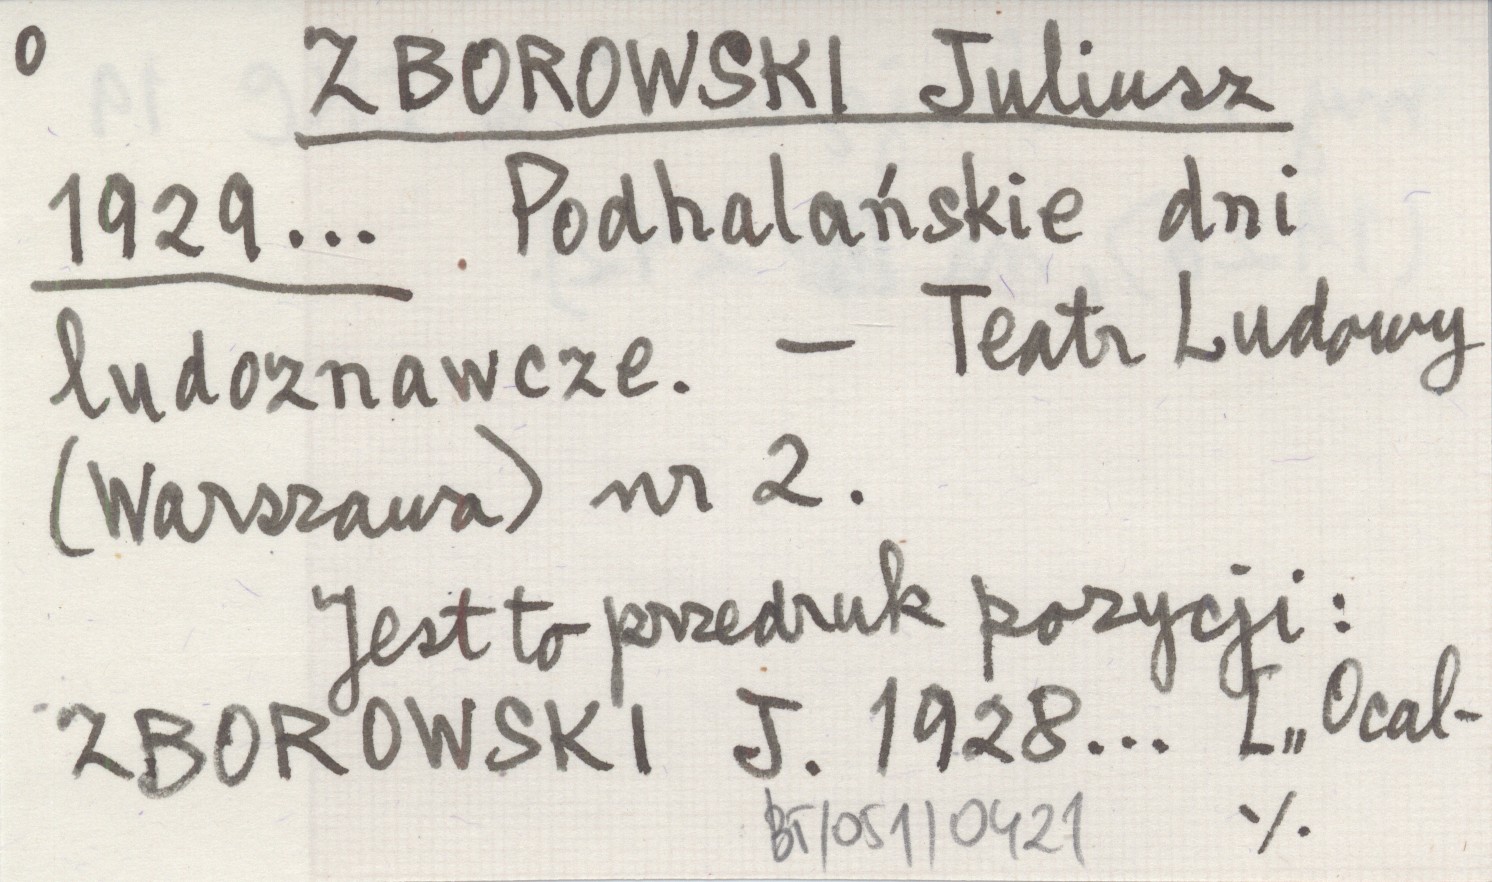 0 ZBOROWSKI Juliusz
1929... Podhalańskie dni
ludoznawcze. — Teatr Ludowy
(Warszawa) nr 2.
Jest to przedruk pozycji:
ZBOROWSKI J. 1928... [„Ocal-
BT/051/0421 ·/.